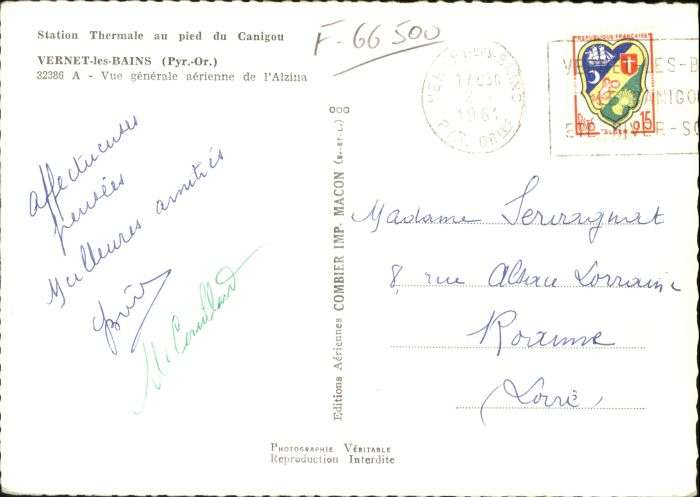 Station Thermale au pied du Canigou
VERNET-les-BAINS (Pyr.-Or.)
32386 A - Vue générale aérienne de l'Alzina
F-66500
1961
PYR. ORIles
REPUBLIQUE FRANÇAISE
POSTES
ALGER 0,15
affectueuses
pensées
Meilleures amitiés
Editions Aériennes COMBIER IMP. MACON (S.-ET-L.)
Madame Serraignat
8, rue Alsace Lorraine
Roanne
Loire
PHOTOGRAPHIE VÉRITABLE
Reproduction Interdite